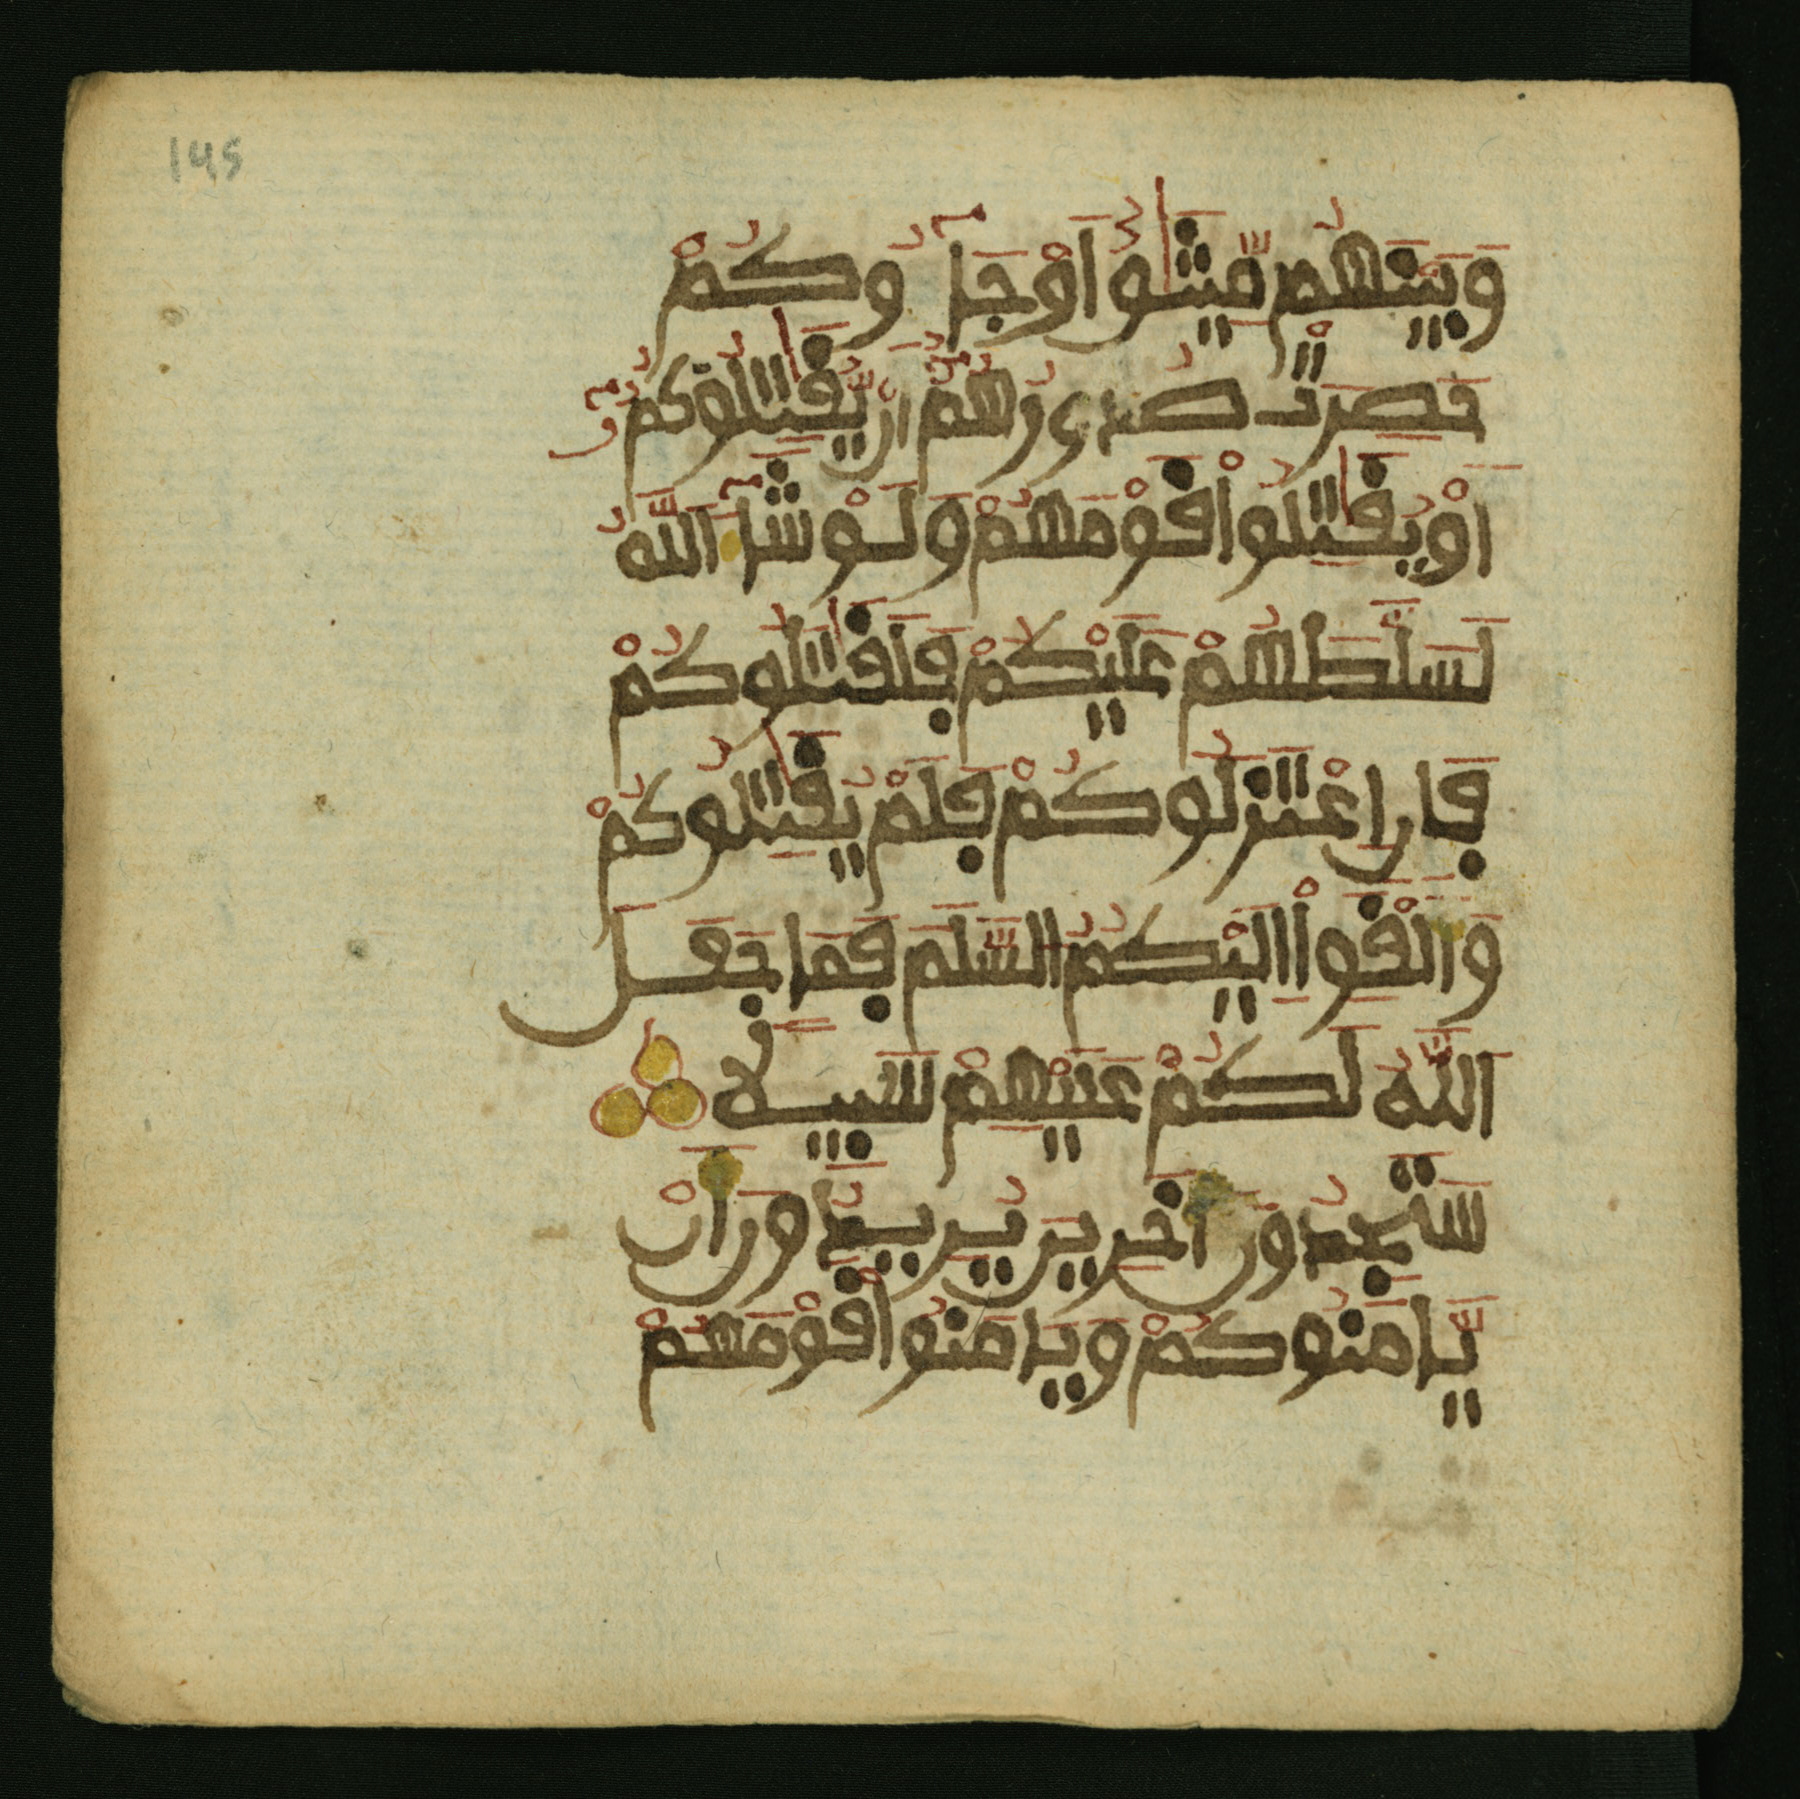 145
وَبَيْنَهُم مِّيثَٰقٌ اَوْ جَآءُوكُمْ
حَصِرَتْ صُدُورُهُمُۥٓ أَنْ يُّقَٰتِلُوكُمُۥٓ
أَوْ يُقَٰتِلُواْ قَوْمَهُمْ وَلَوْ شَآءَ اللَّهُ
لَسَلَّطَهُمْ عَلَيْكُمْ فَلَقَٰتَلُوكُمْ
فَإِنِ اعْتَزَلُوكُمْ فَلَمْ يُقَٰتِلُوكُمْ
وَأَلْقَوِاْ اِلَيْكُمُ السَّلَمَ فَمَا جَعَلَ
اللَّهُ لَكُمْ عَلَيْهِمْ سَبِيلاً
سَتَجِدُونَ ءَاخَرِينَ يُرِيدُونَ أَنْ
يَّامَنُوكُمْ وَيَامَنُواْ قَوْمَهُمْ